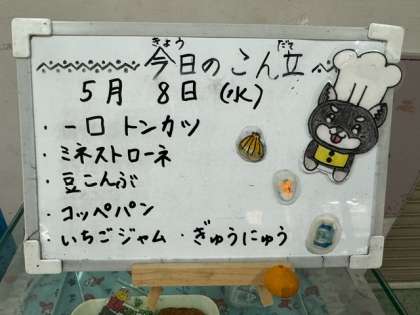 今日のこん立
きょう だて
5月 8日 (水)
・一口 トンカツ
・ミネストローネ
・豆こんぶ
・コッペパン
・いちごジャム ・ぎゅうにゅう